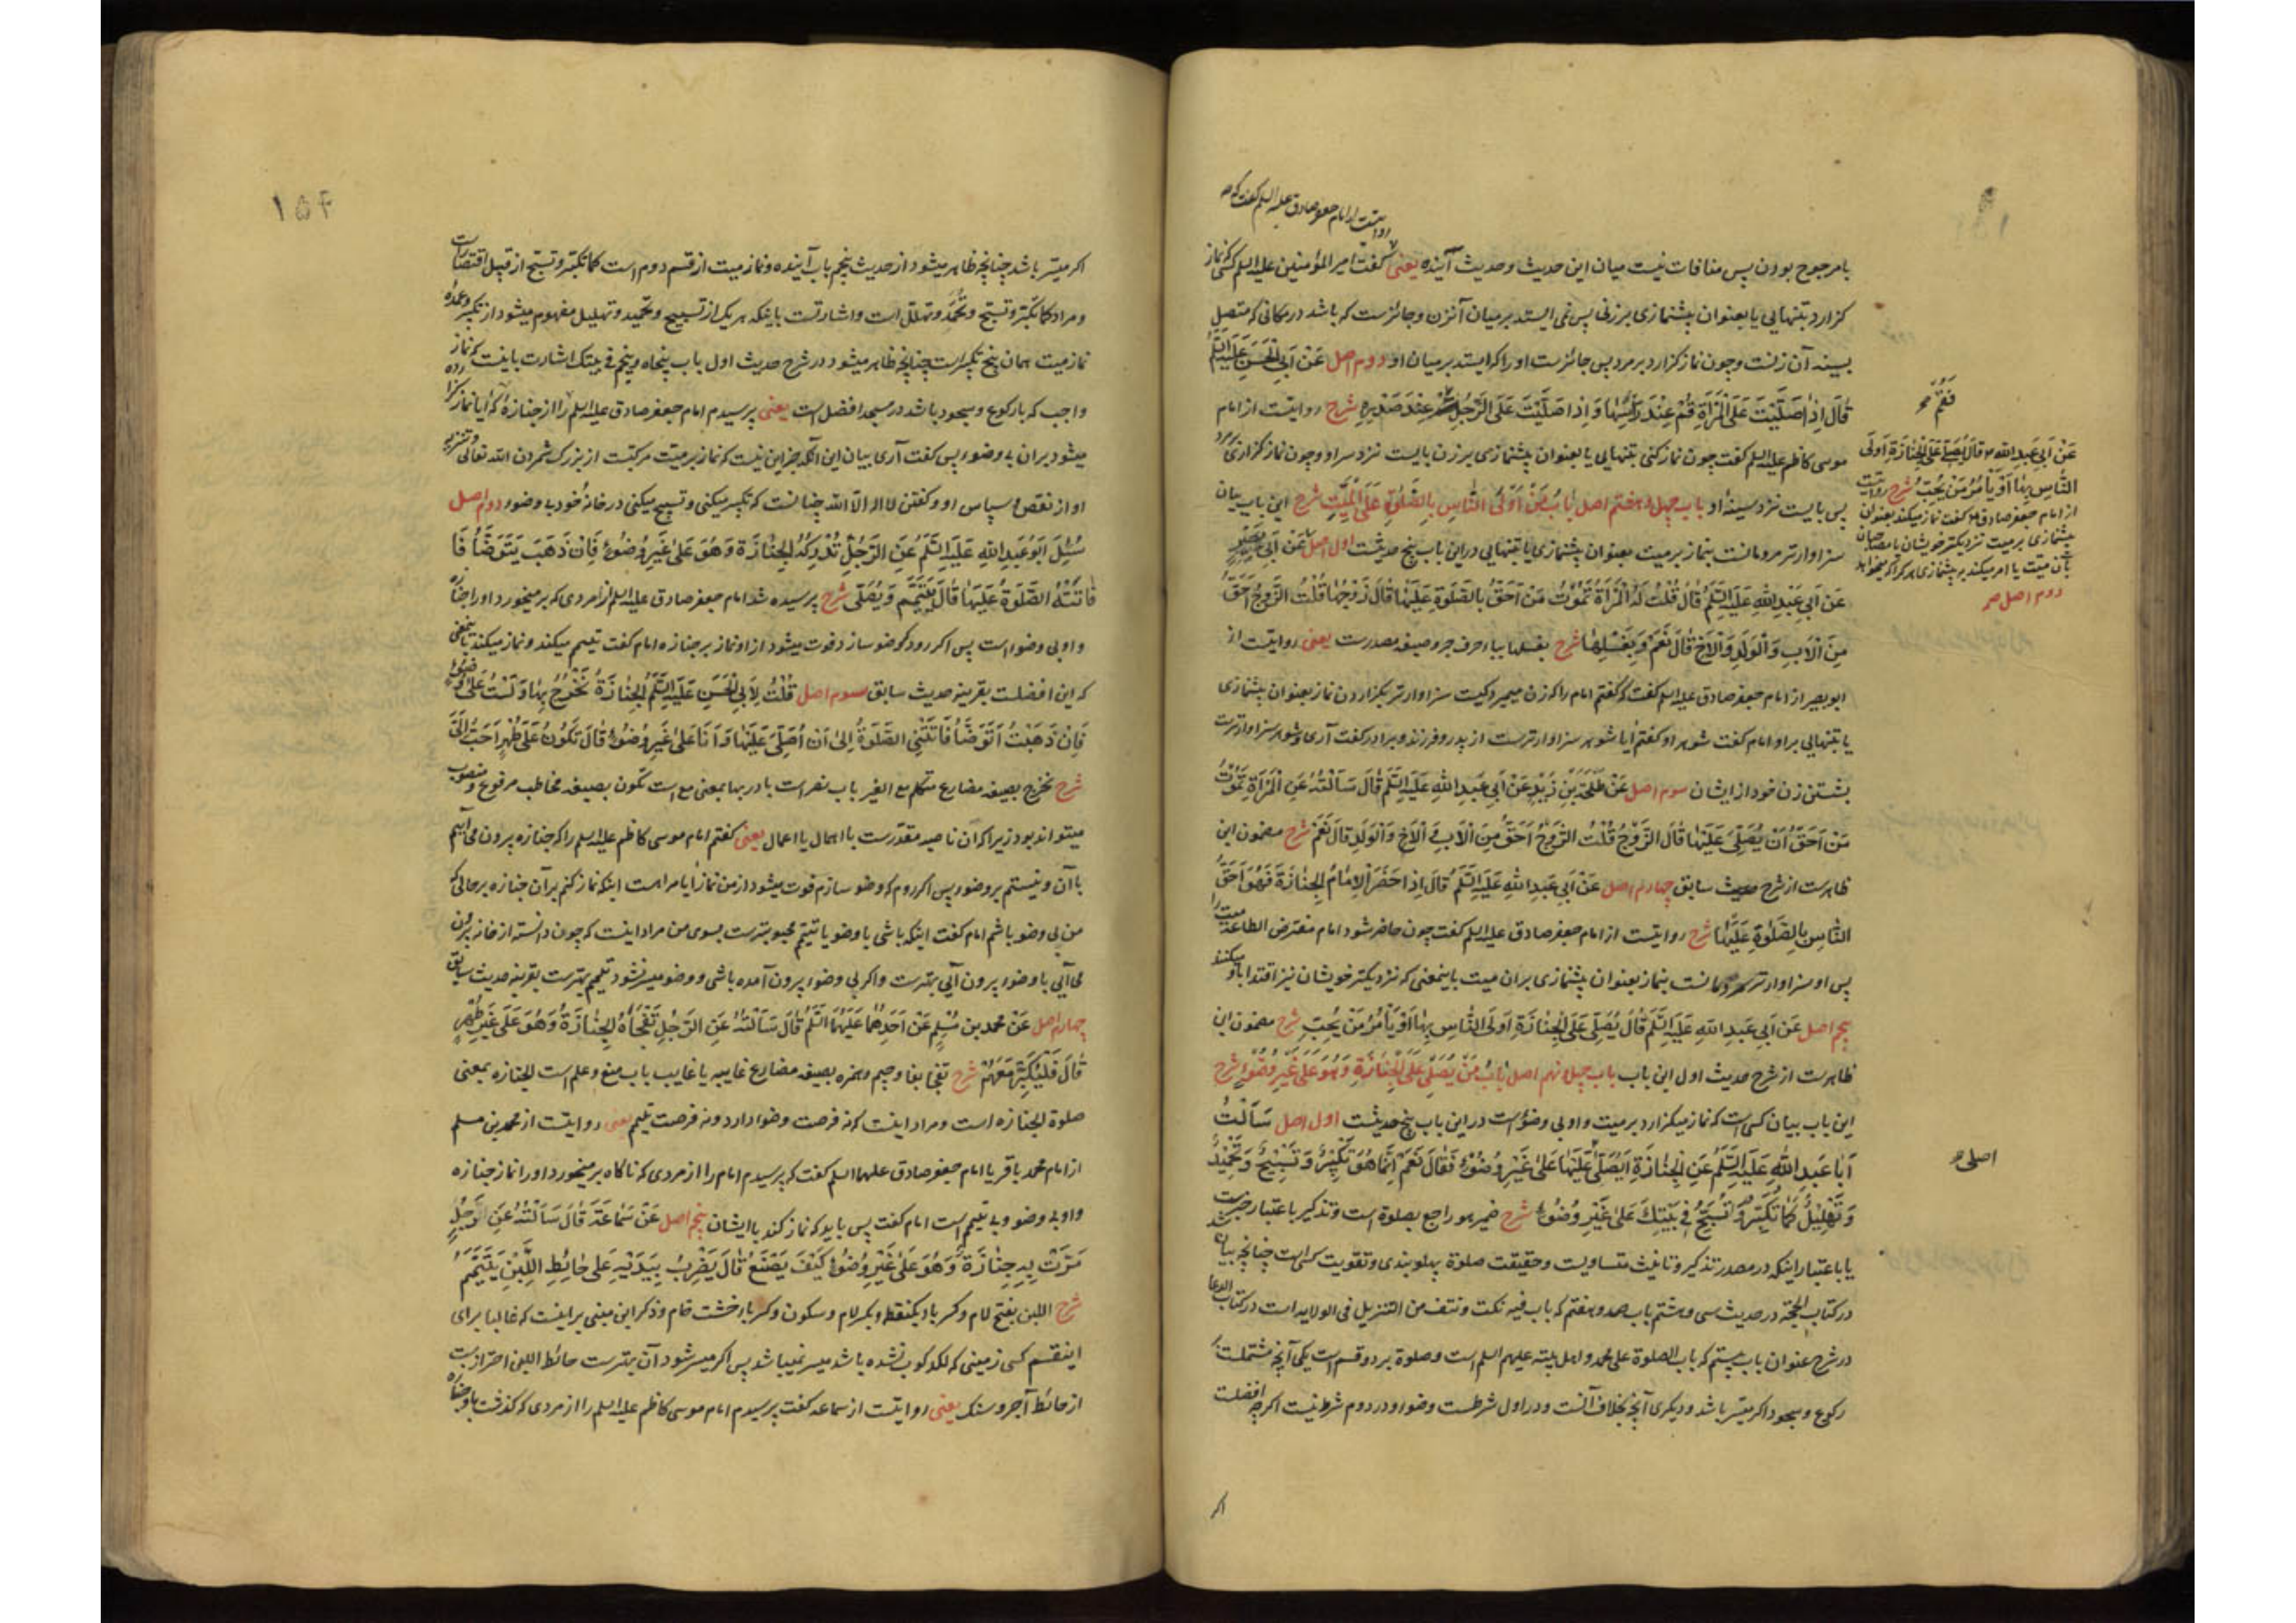 روایتست از امام جعفر صادق علیه السلم گفت که
با مرجوح بودن پس منافات نیست میان این حدیث و حدیث آینده یعنی گفت امیر المؤمنین علیه السلم کسی که نماز
گزارد بتنهایی یا بعنوان پیشنمازی بر زنی پس نمی ایستد بر میان آنزن و جائزست که باشد در مکانی که متصل
بسینه آن زنست و چون نماز گزارد بر مرد پس جائزست او را که ایستد بر میان او دوم اصل عَنْ أَبِي الْحَسَنِ عَلَيْهِ السَّلَمُ
قَالَ إِذَا صَلَّيْتَ عَلَى الْمَرْأَةِ قُمْ عِنْدَ رَأْسِهَا وَ إِذَا صَلَّيْتَ عَلَى الرَّجُلِ عِنْدَ صَدْرِهِ شرح روایتست از امام
موسی کاظم علیه السلم گفت چون نماز کنی بتنهایی یا بعنوان پیشنمازی بر زن بایست نزد سر او و چون نماز گزاری بر مرد
پس بایست نزد سینه او باب چهل و هفتم اصل بَابُ مَنْ أَوْلَى النَّاسِ بِالصَّلَوةِ عَلَى الْمَيِّتِ شرح این باب بیان
سزاوارتر مردمانست بنماز بر میت بعنوان پیشنمازی یا بتنهایی در این باب پنج حدیثست اول اصل عَنْ أَبِي بَصِيرٍ
عَنْ أَبِي عَبْدِ اللَّهِ عَلَيْهِ السَّلَمُ قَالَ قُلْتُ لَهُ الْمَرْأَةُ تَمُوتُ مَنْ أَحَقُّ بِالصَّلَوةِ عَلَيْهَا قَالَ زَوْجُهَا قُلْتُ الزَّوْجُ أَحَقُّ
مِنَ الْأَبِ وَ الْوَلَدِ وَ الْأَخِ قَالَ نَعَمْ وَ بِغَسْلِهَا شرح بغسلها ببا حرف جر و صیغه مصدرست یعنی روایتست از
ابو بصیر از امام جعفر صادق علیه السلم گفت که گفتم امام را که زن میمیرد کیست سزاوارتر بگزاردن نماز بعنوان پیشنمازی
یا بتنهایی بر او امام گفت شوهر او گفتم آیا شوهر سزاوارترست از پدر و فرزند و برادر گفت آری و شوهر سزاوارترست
بشستن زن خود از ایشان سوم اصل عَنْ طَلْحَةَ بْنِ زَيْدٍ عَنْ أَبِي عَبْدِ اللَّهِ عَلَيْهِ السَّلَمُ قَالَ سَأَلْتُهُ عَنِ الْمَرْأَةِ تَمُوتُ
مَنْ أَحَقُّ أَنْ يُصَلِّيَ عَلَيْهَا قَالَ الزَّوْجُ قُلْتُ الزَّوْجُ أَحَقُّ مِنَ الْأَبِ وَ الْأَخِ وَ الْوَلَدِ قَالَ نَعَمْ شرح مضمون این
ظاهرست از شرح حدیث سابق چهارم اصل عَنْ أَبِي عَبْدِ اللَّهِ عَلَيْهِ السَّلَمُ قَالَ إِذَا حَضَرَ الْإِمَامُ الْجِنَازَةَ فَهُوَ أَحَقُّ
النَّاسِ بِالصَّلَوةِ عَلَيْهَا شرح روایتست از امام جعفر صادق علیه السلم گفت چون حاضر شود امام مفترض الطاعة میت را
پس او سزاوارتر مردمانست بنماز بعنوان پیشنمازی بر آن میت باینمعنی که نزدیکتر خویشان نیز اقتدا باو میکند
پنجم اصل عَنْ أَبِي عَبْدِ اللَّهِ عَلَيْهِ السَّلَمُ قَالَ يُصَلِّي عَلَى الْجِنَازَةِ أَوْلَى النَّاسِ بِهَا أَوْ يَأْمُرُ مَنْ يُحِبُّ شرح مضمون این
ظاهرست از شرح حدیث اول این باب باب چهل و نهم اصل بَابُ مَنْ يُصَلِّي عَلَى الْجِنَازَةِ وَ هُوَ عَلَى غَيْرِ وُضُوءٍ شرح
این باب بیان کسی است که نماز میگزارد بر میت و او بی وضو است در این باب پنج حدیثست اول اصل سَأَلْتُ
أَبَا عَبْدِ اللَّهِ عَلَيْهِ السَّلَمُ عَنِ الْجِنَازَةِ أَيُصَلَّى عَلَيْهَا عَلَى غَيْرِ وُضُوءٍ فَقَالَ نَعَمْ إِنَّمَا هُوَ تَكْبِيرٌ وَ تَسْبِيحٌ وَ تَحْمِيدٌ
وَ تَهْلِيلٌ كَمَا تُكَبِّرُ وَ تُسَبِّحُ فِي بَيْتِكَ عَلَى غَيْرِ وُضُوءٍ شرح ضمیر هو راجع بصلوة است و تذکیر باعتبار خبرست
یا باعتبار اینکه در مصدر تذکیر و تانیث متساویست و حقیقت صلوة پهلوبندی و تقویت کسی است چنانچه بیان شد
در کتاب الحجة در حدیث سی و هشتم باب صد و هفتم که باب فیه نکت و نتف من التنزیل فی الولایه است و در کتاب الدعا
در شرح عنوان باب بیستم که باب الصلوة علی محمد و اهل بیته علیهم السلم است و صلوة بر دو قسم است یکی آنچه مشتملست بر
رکوع و سجود اگر میسّر باشد و دیگری آنچه بخلاف آنست و در اول شرطست وضو و در دوم شرط نیست اگرچه افضلست
اگر
فَقُمْ
عَنْ أَبِي عَبْدِ اللَّهِ قَالَ يُصَلِّي عَلَى الْجِنَازَةِ أَوْلَى
النَّاسِ بِهَا أَوْ يَأْمُرُ مَنْ يُحِبُّ شرح روایتست
از امام جعفر صادق گفت نماز میکند بعنوان
پیشنمازی بر میت نزدیکتر خویشان یا مصاحبان
بآن میت یا امر میکند به پیشنمازی هر که را که میخواهد
دوم اصل
اصلی
۱۵۴
اگر میسّر باشد چنانچه ظاهر میشود از حدیث پنجم باب آینده و نماز میت از قسم دوم است کما تکبّر و تسبّح از قبیل اقتصارست
و مراد کما تکبّر و تسبّح و تحمّد و تهلّل است و اشارتست باینکه هر یک از تسبیح و تحمید و تهلیل مفهوم میشود از تکبیر و عمده
نماز میت همان پنج تکبیر است چنانچه ظاهر میشود در شرح حدیث اول باب پنجاه و پنجم فی بیتک اشارت باینست که نماز
واجب که با رکوع و سجود باشد در مسجد افضل است یعنی پرسیدم امام جعفر صادق علیه السلم را از جنازه که آیا نماز گزارده
میشود بر آن بی وضو پس گفت آری بیان این آنکه جز این نیست که نماز بر میت مرکبست از بزرگ شمردن الله تعالی و تنزیه
او از نقص و سپاس او و گفتن لا اله الا الله چنانست که تکبیر میکنی و تسبیح میکنی در خانه خود با وضو دوم اصل
سُئِلَ أَبُو عَبْدِ اللَّهِ عَلَيْهِ السَّلَمُ عَنِ الرَّجُلِ تُدْرِكُهُ الْجِنَازَةُ وَ هُوَ عَلَى غَيْرِ وُضُوءٍ فَإِنْ ذَهَبَ يَتَوَضَّأُ فَا
فَاتَتْهُ الصَّلَوةُ عَلَيْهَا قَالَ يَتَيَمَّمُ وَ يُصَلِّي شرح پرسیده شد امام جعفر صادق علیه السلم از مردی که بر میخورد او را جنازه
و او بی وضو است پس اگر رود که وضو سازد فوت میشود از او نماز بر جنازه امام گفت تیمم میکند و نماز میکند باینمعنی
که این افضلست بقرینه حدیث سابق سوم اصل قُلْتُ لِأَبِي الْحَسَنِ عَلَيْهِ السَّلَمُ الْجِنَازَةُ نَخْرُجُ بِهَا وَ لَسْتُ عَلَى وُضُوءٍ
فَإِنْ ذَهَبْتُ أَتَوَضَّأُ فَاتَتْنِي الصَّلَوةُ إِلَى أَنْ أُصَلِّيَ عَلَيْهَا وَ أَنَا عَلَى غَيْرِ وُضُوءٍ قَالَ تَكُونُ عَلَى طُهْرٍ أَحَبُّ إِلَيَّ
شرح نخرج بصیغه مضارع متکلم مع الغیر باب نصر است با در بها بمعنی مع است تکون بصیغه مخاطب مرفوع و منصوب
میتواند بود زیرا که ان ناصبه مقدّرست با اهمال یا اعمال یعنی گفتم امام موسی کاظم علیه السلم را که جنازه بیرون می آییم
با آن و نیستم بر وضو پس اگر روم که وضو سازم فوت میشود از من نماز آیا مرا هست اینکه نماز کنم بر آن جنازه بر حالی که
من بی وضو باشم امام گفت اینکه باشی با وضو یا تیمّم محبوبترست بسوی من مراد اینست که چون دانسته از خانه بیرون
می آیی با وضو بیرون آیی بهترست و اگر بی وضو بیرون آمده باشی و وضو میسر نشود تیمم بهترست بقرینه حدیث سابق
چهارم اصل عَنْ مُحَمَّدِ بْنِ مُسْلِمٍ عَنْ أَحَدِهِمَا عَلَيْهِمَا السَّلَمُ قَالَ سَأَلْتُهُ عَنِ الرَّجُلِ تَفْجَأُهُ الْجِنَازَةُ وَ هُوَ عَلَى غَيْرِ طُهْرٍ
قَالَ فَلْيُكَبِّرْ مَعَهُمْ شرح تفجأ بفا و جیم و همزه بصیغه مضارع غایبه یا غایب باب منع و علم است الجنازه بمعنی
صلوة الجنازه است و مراد اینست که نه فرصت وضو دارد و نه فرصت تیمم یعنی روایتست از محمد بن مسلم
از امام محمد باقر یا امام جعفر صادق علیهما السلم گفت که پرسیدم امام را از مردی که ناگاه بر میخورد او را نماز جنازه
و او بی وضو و بی تیمم است امام گفت پس باید که نماز کند با ایشان پنجم اصل عَنْ سَمَاعَةَ قَالَ سَأَلْتُهُ عَنِ الرَّجُلِ
مَرَّتْ بِهِ جِنَازَةٌ وَ هُوَ عَلَى غَيْرِ وُضُوءٍ كَيْفَ يَصْنَعُ قَالَ يَضْرِبُ بِيَدَيْهِ عَلَى حَائِطِ اللَّبِنِ يَتَيَمَّمُ
شرح اللبن بفتح لام و کسر با یکنقطه و بکسر لام و سکون و کسر با خشت خام و ذکر این مبنی بر اینست که غالبا برای
اینقسم کسی زمینی که لگدکوب نشده باشد میسر نمیباشد پس اگر میسر شود آن بهترست حائط اللبن احترازست
از حائط آجر و سنگ یعنی روایتست از سماعه گفت پرسیدم امام موسی کاظم علیه السلم را از مردی که گذشت باو جنازه